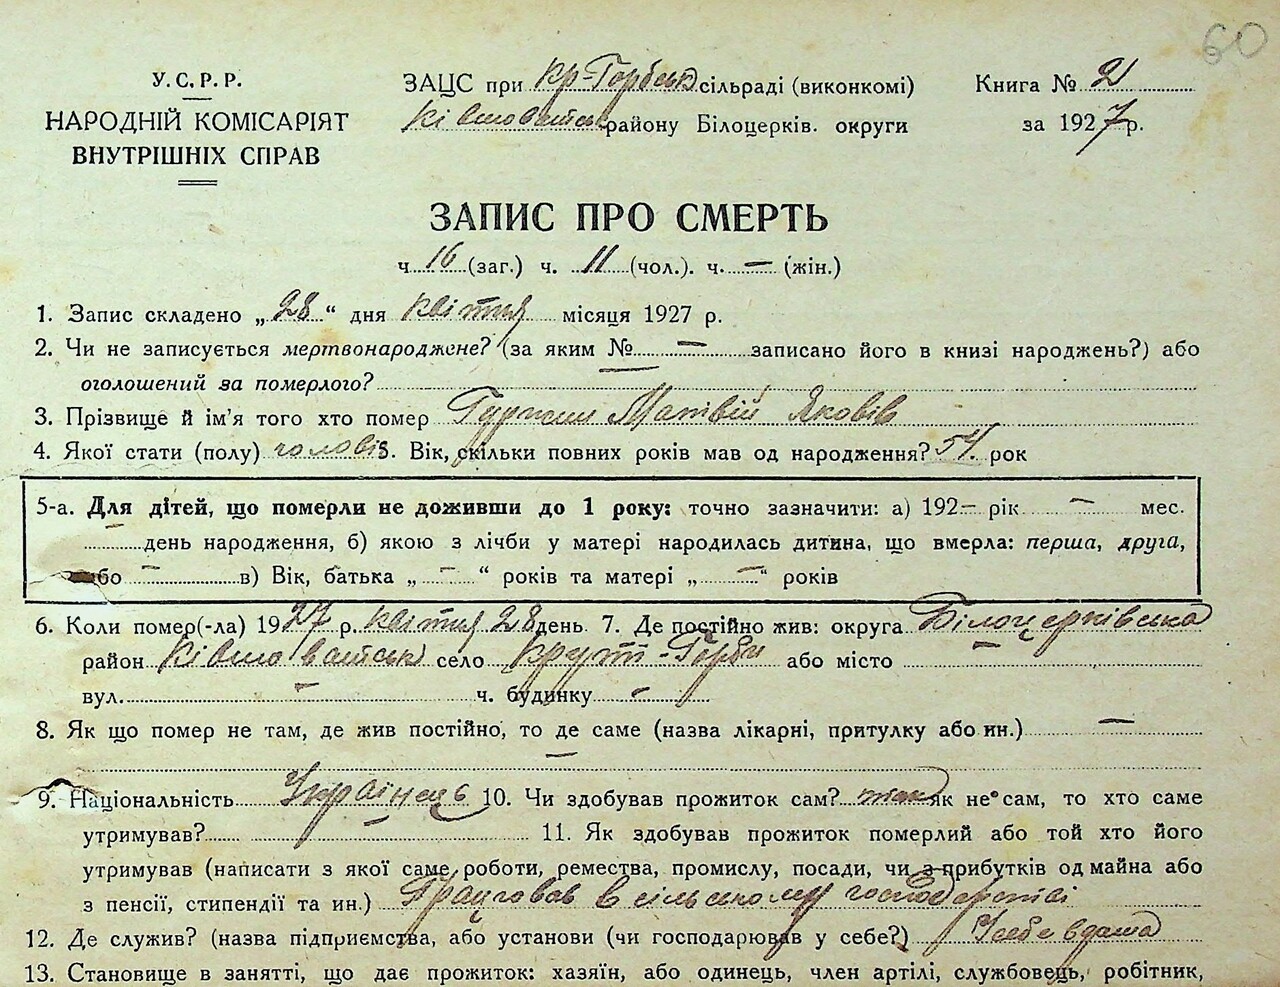 60
У.С.Р.Р.
НАРОДНІЙ КОМІСАРІЯТ
ВНУТРІШНІХ СПРАВ
ЗАЦС при Кр-Горбськ сільраді (виконкомі)
району Білоцерків. округи
Книга № 2
за 1927 р.
ЗАПИС ПРО СМЕРТЬ
ч. 16 (заг.) ч. 11 (чол.). ч. — (жін.)
1. Запис складено „28“ дня квітня місяця 1927 р.
2. Чи не записується мертвонароджене? (за яким № — записано його в книзі народжень?) або
оголошений за померлого?
3. Прізвище й ім'я того хто помер Матвій Яковів
4. Якої стати (полу) чоловіч. 5. Вік, скільки повних років мав од народження? 54. рок
5-а. Для дітей, що померли не доживши до 1 року: точно зазначити: а) 192— рік — мес.
— день народження, б) якою з лічби у матері народилась дитина, що вмерла: перша, друга,
або — в) Вік, батька „ — “ років та матері „ — “ років
6. Коли помер(-ла) 1927 р. квітня 28 день. 7. Де постійно жив: округа Білоцерківська
район село Круті-Горби або місто —
вул. — ч. будинку —
8. Як що помер не там, де жив постійно, то де саме (назва лікарні, притулку або ин.) —
—
9. Національність Українець 10. Чи здобував прожиток сам? так як не сам, то хто саме
утримував? — 11. Як здобував прожиток померлий або той хто його
утримував (написати з якої саме роботи, ремества, промислу, посади, чи з прибутків од майна або
з пенсії, стипендії та ин.) Працював в сільському господарстві
12. Де служив? (назва підприємства, або установи (чи господарював у себе?) У себе вдома
13. Становище в занятті, що дає прожиток: хазяїн, або одинець, член артілі, службовець, робітник,